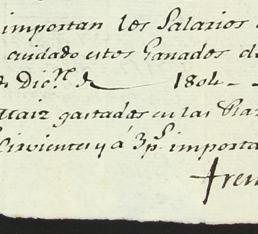 importan los Salarios
cuidado estos Ganados de
Dic.e de 1804
Maiz gastadas en las Ra
Sirvientes y á 3 p.s importa